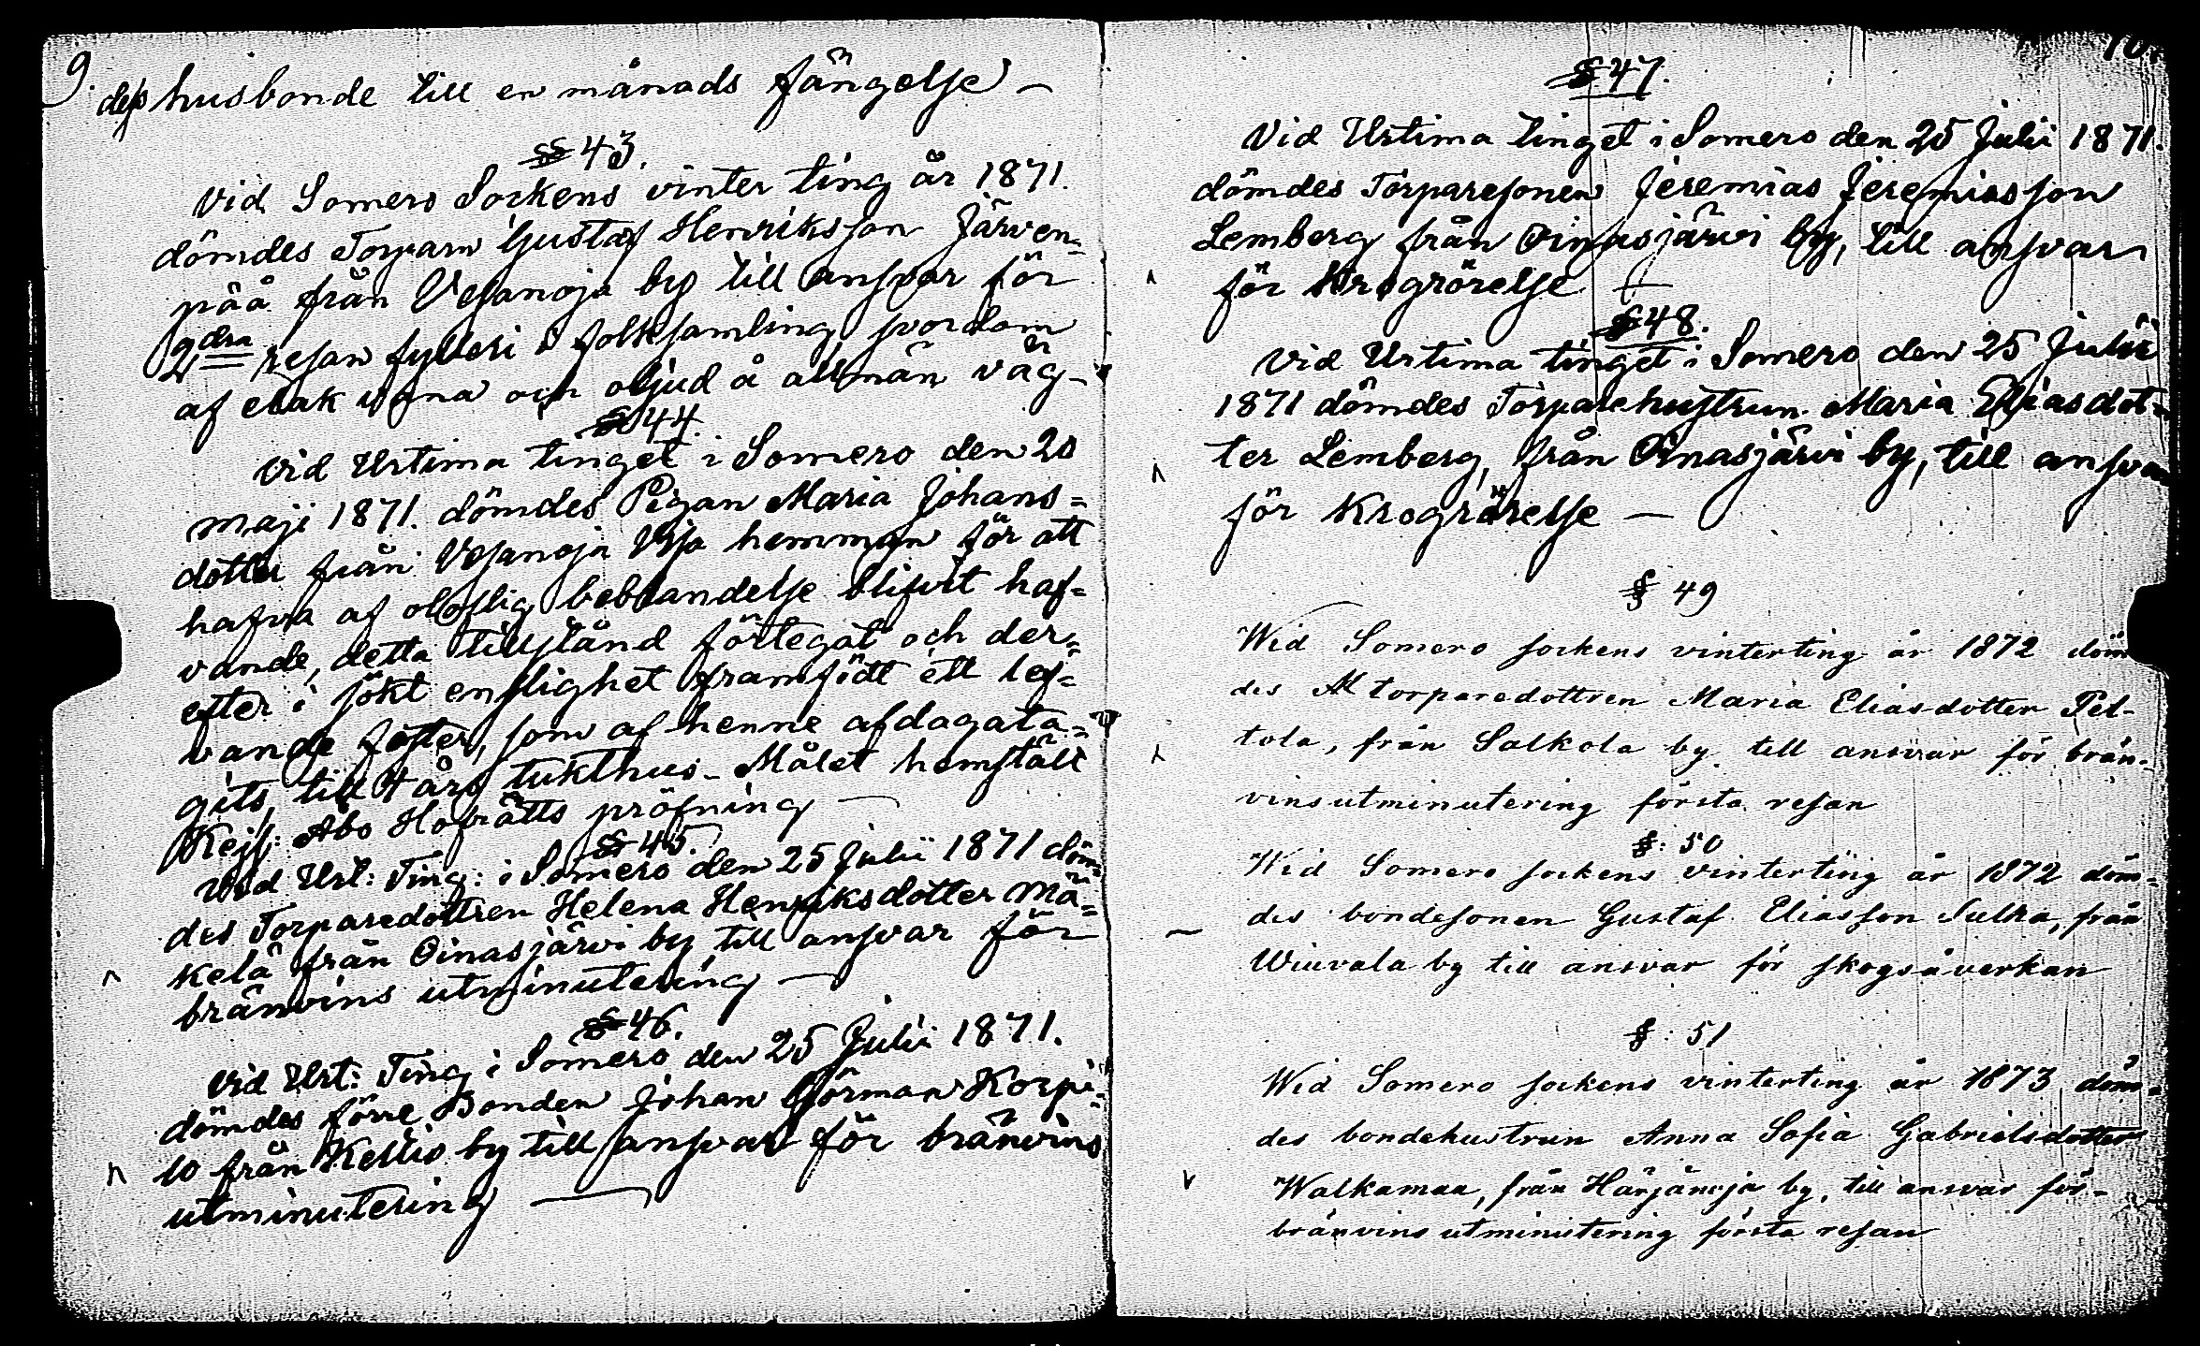 9.
dess husbonde till en månads fängelse —
§ 43.
Vid Somero Sockens vinter ting år 1871.
dömdes Torparn Gustaf Henriksson Järven=
pää från Vesanoja by till ansvar för
2dra resan fylleri i folksamling svordom
af elak vana och oljud å allmän väg —
§ 44.
Vid Urtima tinget i Somero den 20
maji 1871. dömdes Pigan Maria Johans=
dotter från Vesanoja hemman för att
hafva af oloflig beblandelse blifvit haf=
vande, detta tillstånd förtegat och der=
efter i sökt enslighet framfödt ett lef=
vande foster, som af henne afdagata=
gits, till 4 års tukthus — Målet hemstält
Kejs: Åbo Hofrätts pröfning —
§ 45.
Vid Urt: Ting: i Somero den 25 Julii 1871 döm=
des Torparedottren Helena Henriksdotter Mä=
kelä från Oinasjärvi by till ansvar för
bränvins utminutering —
§ 46.
Vid Urt: Ting i Somero den 25 Julii 1871.
dömdes förre Bonden Johan Görman Korpi=
lo från Kellio by till ansvar för bränvins
utminutering —
10.
§ 47.
Vid Urtima tinget i Somero den 25 Julii 1871.
dömdes Torparesonen Jeremias Jeremiasson
Lemberg från Oinasjärvi by, till ansvar
för Krogrörelse —
§ 48.
Vid Urtima tinget i Somero den 25 Julii
1871 dömdes Torparehustrun Maria Eliasdot=
ter Lemberg, från Oinasjärvi by, till ansvar
för Krogrörelse —
§ 49
Wid Somero sockens vinterting år 1872 döm
des torparedottren Maria Eliasdotter Pel-
tola, från Salkola by till ansvar för brän-
vinsutminutering första resan
§: 50
Wid Somero sockens vinterting år 1872 döm=
des bondesonen Gustaf Eliasson Sulka, från
Wiuvala by till ansvar för skogsåverkan
§: 51
Wid Somero sockens vinterting år 1873 döm=
des bondehustrun Anna Sofia Gabrielsdotter
Walkamaa, från Härjänoja by, till ansvar för-
bränvins utminutering första resan